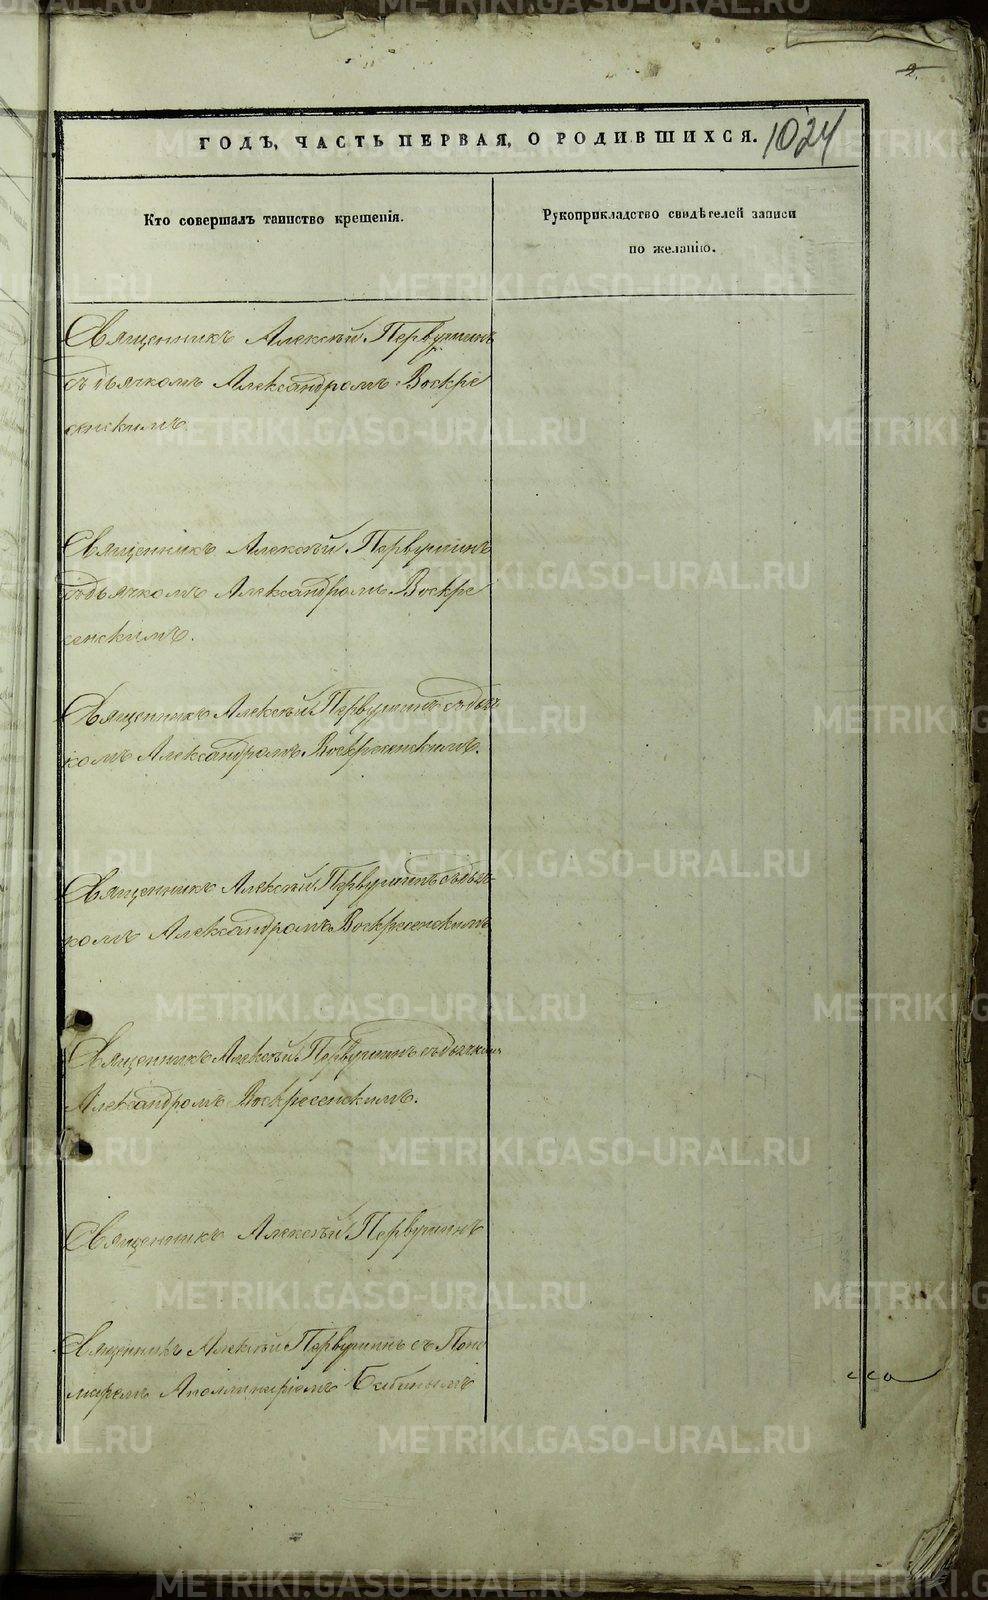 2.
ГОДЪ, ЧАСТЬ ПЕРВАЯ, О РОДИВШИХСЯ.
1024
Кто совершалъ таинство крещенія.
Рукоприкладство свидѣтелей записи
по желанію.
Священникъ Алексѣй Первушинъ
съ дьячкомъ Александромъ Воскре
сенскимъ
Священникъ Алексѣй Первушинъ
съ дьячкомъ Александромъ Воскре
сенскимъ.
Священникъ Алексѣй Первушинъ съ дьяч
комъ Александромъ Воскресенскимъ.
Священникъ Алексѣй Первушинъ съ дьяч
комъ Александромъ Воскресенскимъ
Священникъ Алексѣй Первушинъ съ дьячкомъ
Александромъ Воскресенскимъ.
Священникъ Алексѣй Первушинъ
Священникъ Алексѣй Первушинъ съ Поно
маремъ Аполлинаріемъ Бабинымъ
METRIKI.GASO-URAL.RU